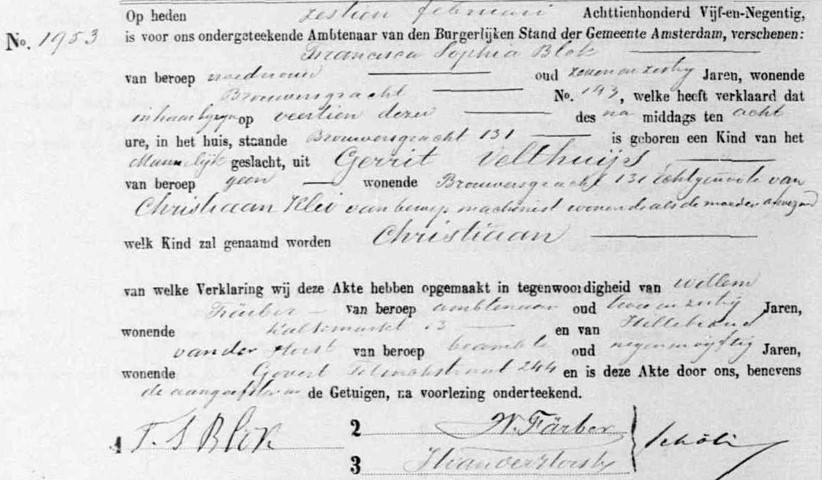 Op heden zestien februari Achttienhonderd Vijf-en-Negentig,
No. 1953 is voor ons ondergeteekende Ambtenaar van den Burgerlijken Stand der Gemeente Amsterdam, verschenen:
Francisca Sophia Blok
van beroep vroedvrouw oud zeven en zestig Jaren, wonende
Brouwersgracht No. 193, welke heeft verklaard dat
in haar bijzijn op veertien dezer des na middags ten acht
ure, in het huis, staande Brouwersgracht 131 is geboren een Kind van het
Mannelijk geslacht, uit Gerrit Velthuijs,
van beroep geen wonende Brouwersgracht 131 Echtgenoote van
Christiaan Klei van beroep machinist wonende als de moeder afwezend
welk Kind zal genaamd worden Christiaan
van welke Verklaring wij deze Akte hebben opgemaakt in tegenwoordigheid van Willem
Färber van beroep ambtenaar oud twee en zestig Jaren,
wonende Kalkmarkt 13 en van Hillebrand
van der Horst van beroep beambte oud negen en vijftig Jaren,
wonende Govert Flinckstraat 244 en is deze Akte door ons, benevens
de aangeefster en de Getuigen, na voorlezing onderteekend.
1 F. S Blok 2 W. Färber
3 H van der Horst